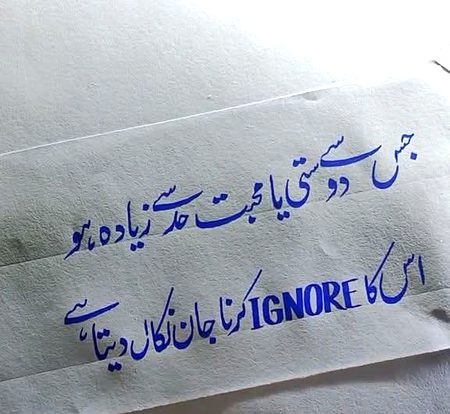 جس سے دوستی یا محبت حد سے زیادہ ہو
اس کا IGNORE کرنا جان نکال دیتا ہے